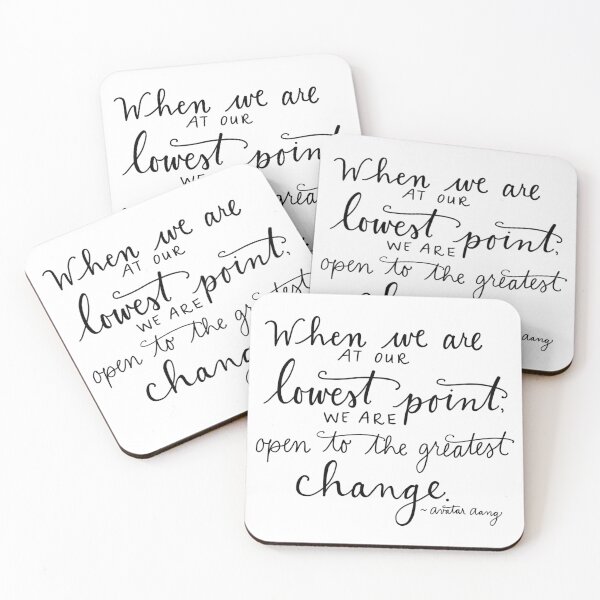 When we are
AT OUR
lowest point
WE
When we are
AT OUR
lowest point,
WE ARE
open to the greatest
aang
When we are
AT OUR
lowest point,
WE ARE
open to the greatest
chang
When we are
AT OUR
lowest point,
WE ARE
open to the greatest
change.
~avatar aang